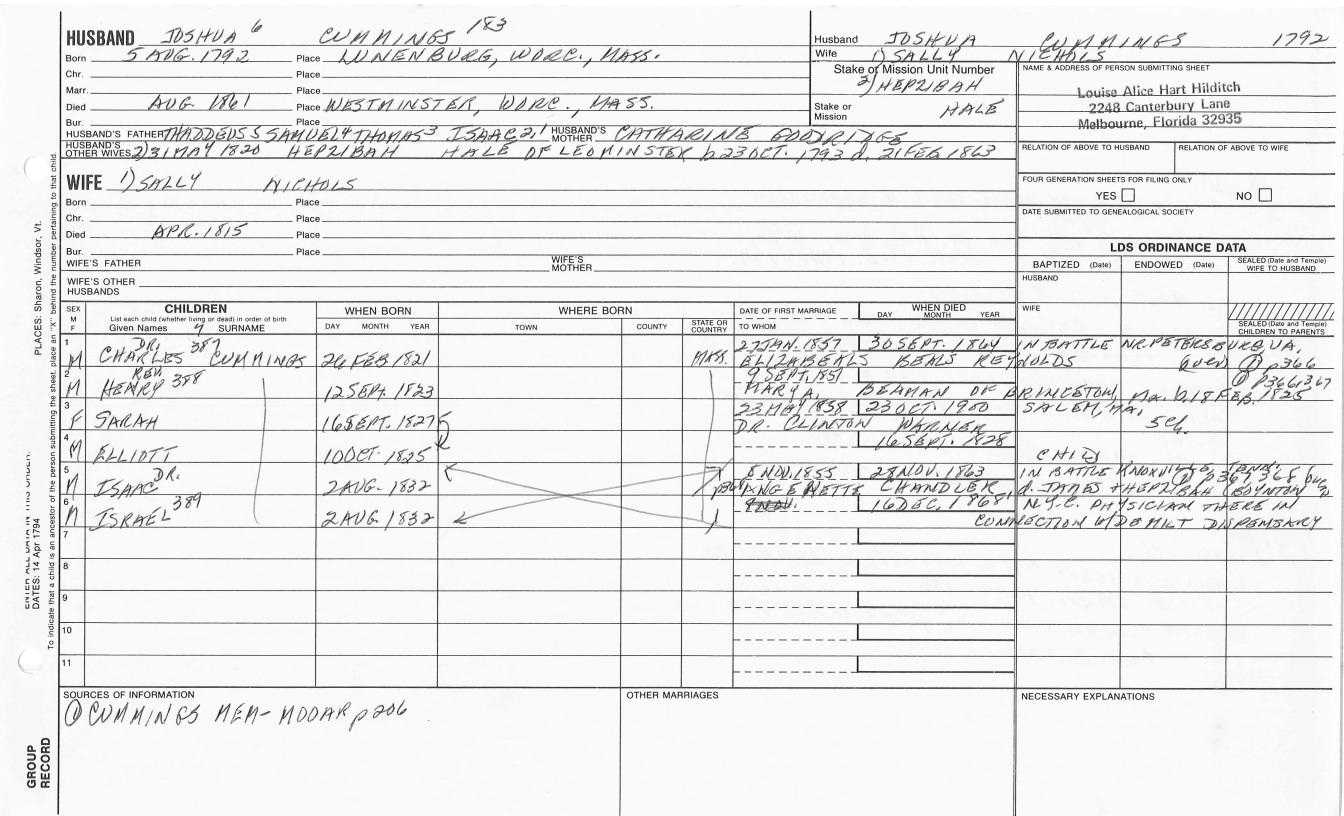 HUSBAND JOSHUA 6 CUMMINGS 183
Born 5 AUG. 1792 Place LUNENBURG, WORC., MASS.
Chr. Place
Marr. Place
Died AUG 1861 Place WESTMINSTER, WORC., MASS.
Bur. Place
HUSBAND'S FATHER THADDEUS 5 SAMUEL 4 THOMAS 3 ISAAC 2,1 HUSBAND'S MOTHER CATHARINE GOODRIDGE
HUSBAND'S OTHER WIVES 2) 31 MAY 1820 HEPZIBAH HALE OF LEOMINSTER b 23 OCT. 1793 d. 21 FEB 1863
Husband JOSHUA CUMMINGS 1792
Wife 1) SALLY NICHOLS
Stake or Mission Unit Number
2) HEPZIBAH
Stake or Mission HALE
NAME & ADDRESS OF PERSON SUBMITTING SHEET
Louise Alice Hart Hilditch
2248 Canterbury Lane
Melbourne, Florida 32935
RELATION OF ABOVE TO HUSBAND RELATION OF ABOVE TO WIFE
FOUR GENERATION SHEETS FOR FILING ONLY
YES NO
DATE SUBMITTED TO GENEALOGICAL SOCIETY
WIFE 1) SALLY NICHOLS
Born Place
Chr. Place
Died APR. 1815 Place
Bur. Place
WIFE'S FATHER WIFE'S MOTHER
WIFE'S OTHER HUSBANDS
LDS ORDINANCE DATA
BAPTIZED (Date) ENDOWED (Date) SEALED (Date and Temple) WIFE TO HUSBAND
HUSBAND
WIFE
SEALED (Date and Temple) CHILDREN TO PARENTS
SEX M F
CHILDREN
List each child (whether living or dead) in order of birth
Given Names 7 SURNAME
WHEN BORN
DAY MONTH YEAR
WHERE BORN
TOWN COUNTY STATE OR COUNTRY
DATE OF FIRST MARRIAGE
TO WHOM
WHEN DIED
DAY MONTH YEAR
1 M DR. CHARLES 387 CUMMINGS 26 FEB 1821 MASS. 27 JAN. 1857 30 SEPT. 1864 IN BATTLE NR. PETERSBURG, VA.
ELIZABETH BEALS REYNOLDS (over) ① p366
2 M REV HENRY 388 12 SEPT. 1823 9 SEPT, 1851 ① p366,367
MARY A. BEAMAN OF PRINCETON, Ma. b. 18 FEB. 1825
3 F SARAH 16 SEPT. 1827 23 MAY 1858 23 OCT. 1900 SALEM, MA.
DR. CLINTON WARNER
4 M ELLIOTT 10 OCT. 1825 16 SEPT. 1828 CHILD
5 M ISAAC DR. 2 AUG. 1832 8 NOV. 1855 28 NOV. 1863 IN BATTLE KNOXVILLE, TENN. ① p367,368
ANGENETTE CHANDLER d. JAMES & HEPZIBAH (BOYNTON
6 M ISRAEL 389 2 AUG. 1832 16 DEC, 1868 N.Y.C. PHYSICIAN THERE IN
CONNECTION W/ DEMILT DISPENSARY
7
8
9
10
11
SOURCES OF INFORMATION
① CUMMINGS MEM- MOOAR p 206
OTHER MARRIAGES
NECESSARY EXPLANATIONS
PLACES: Sharon, Windsor, Vt.
DATES: 14 Apr 1794
To indicate that a child is an ancestor of the person submitting the sheet, place an "X" behind the number pertaining to that child.
GROUP RECORD